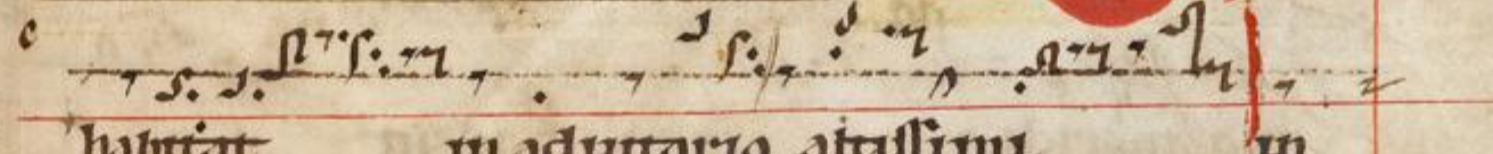 c
habitat in adiutorio altissimi in